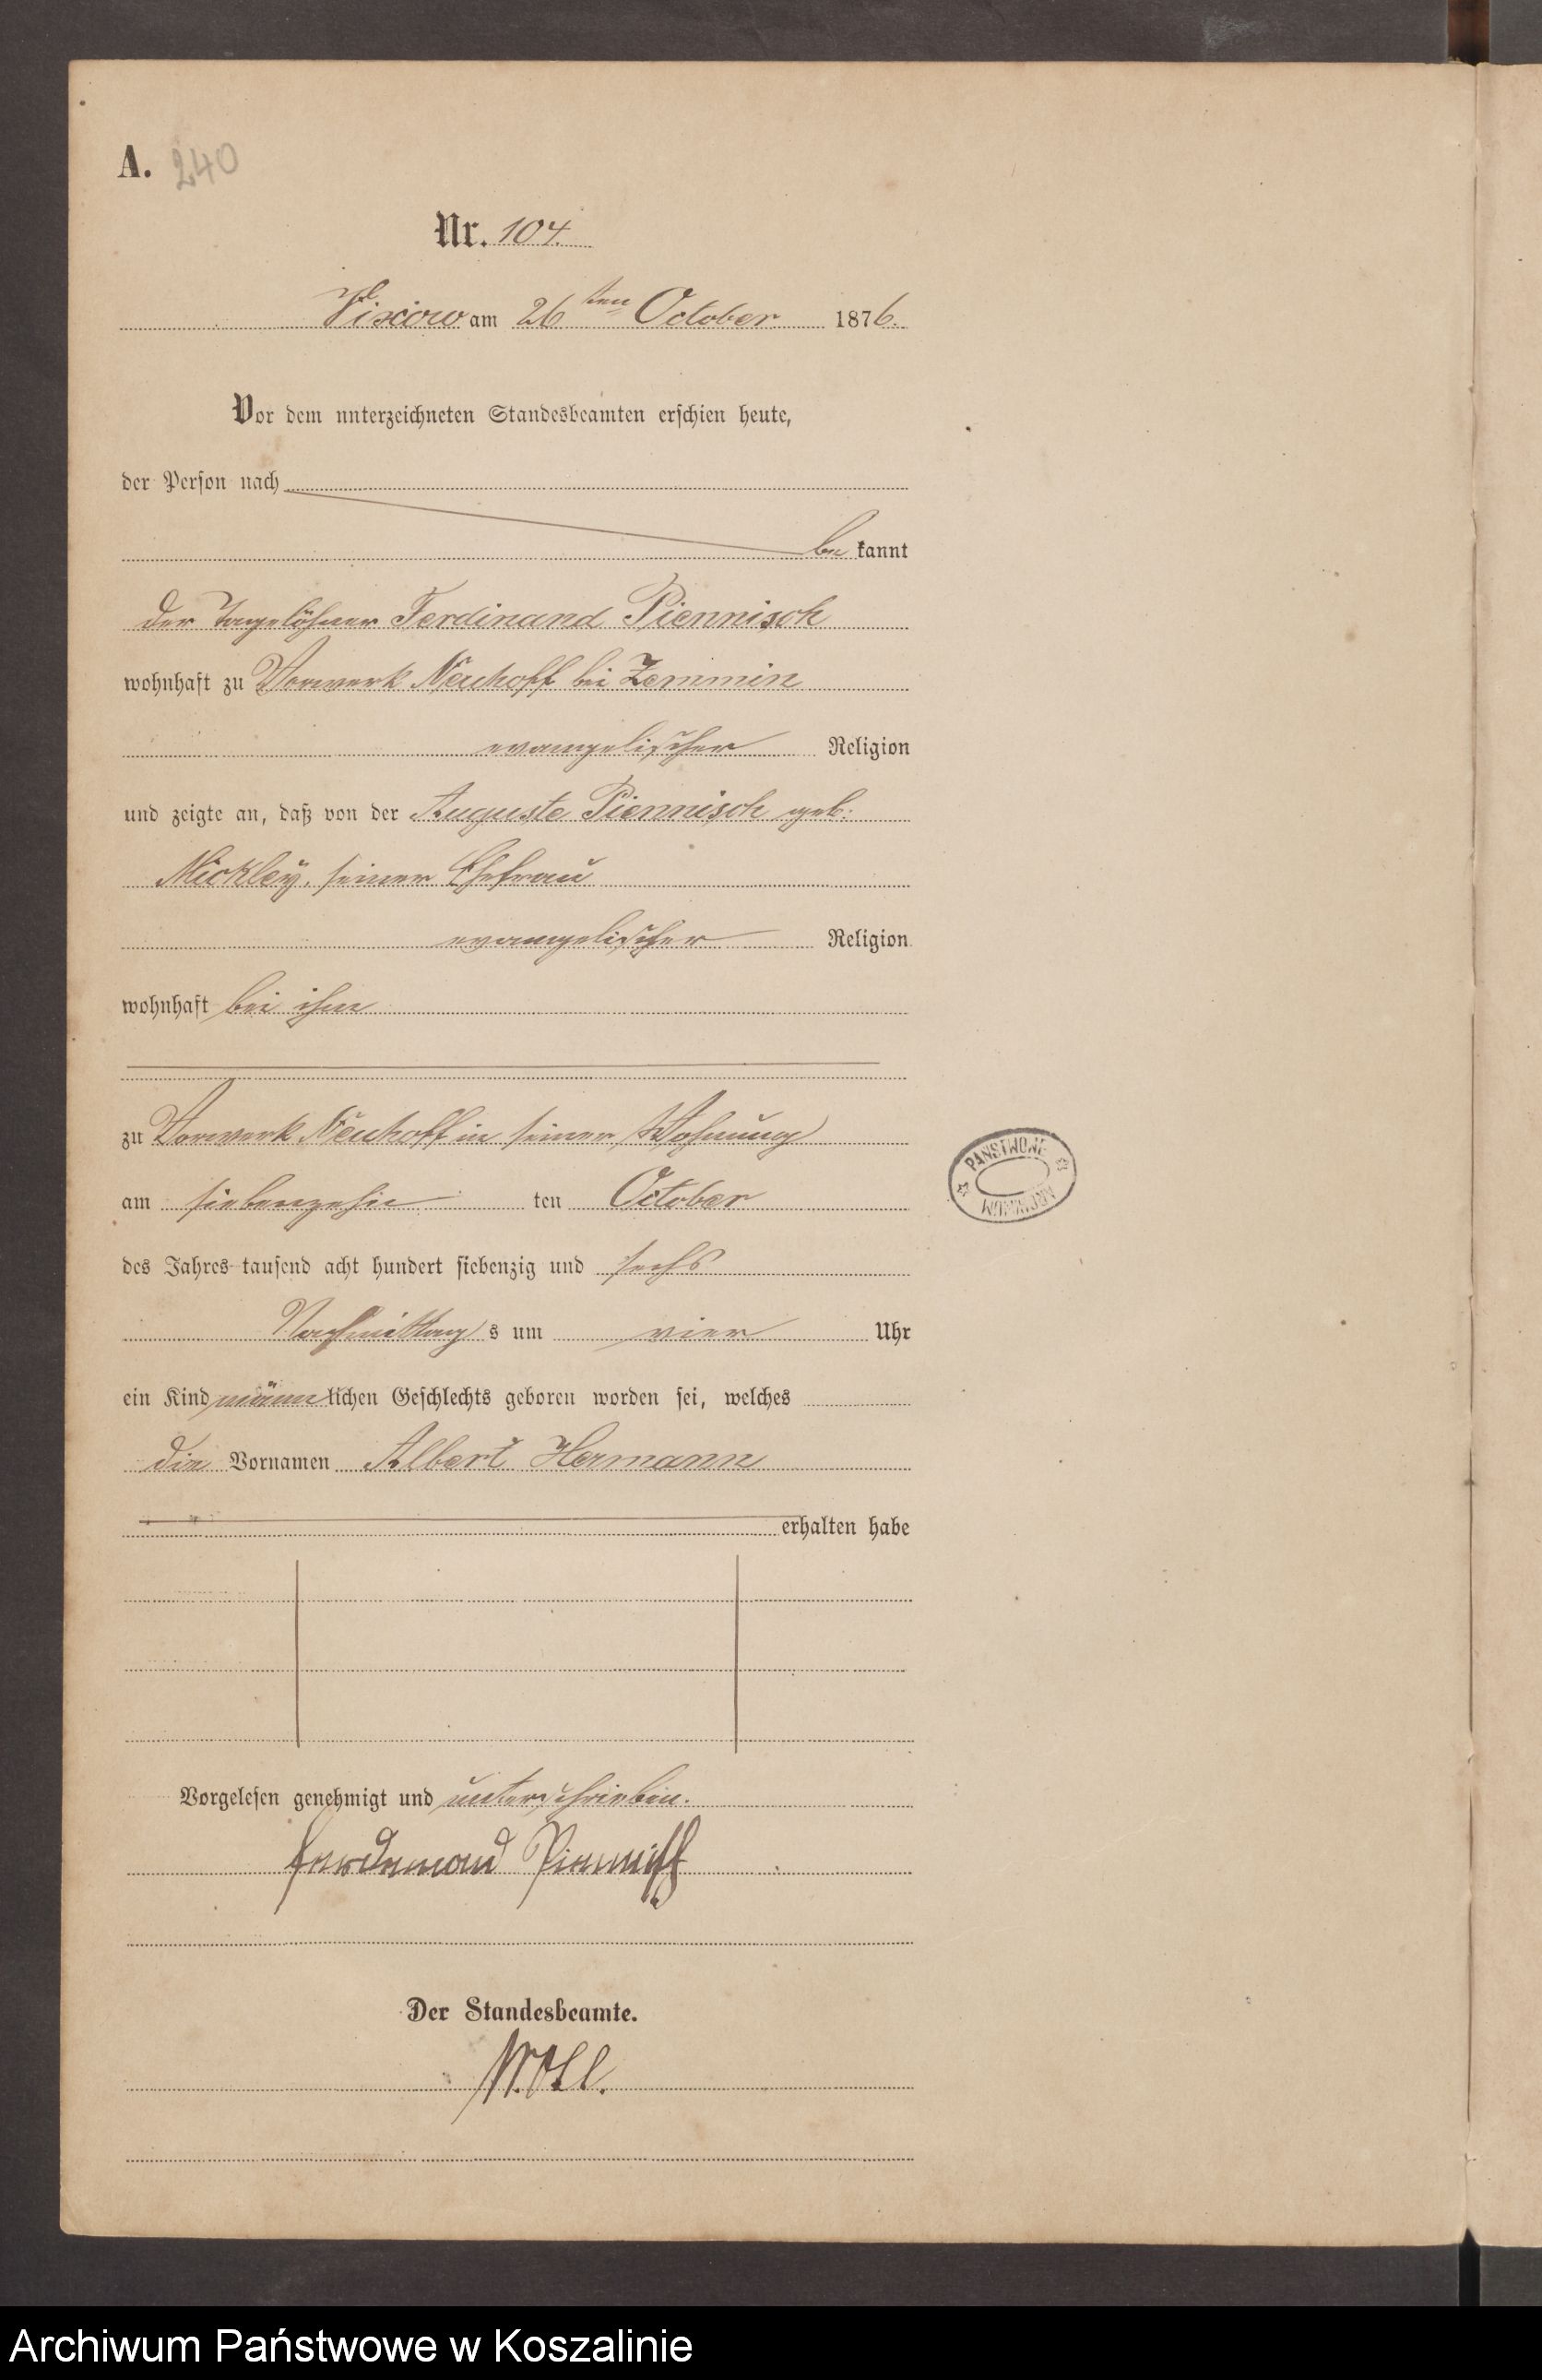 A. 240
Nr. 104.
Vixow am 26ten October 1876.
Vor dem unterzeichneten Standesbeamten erschien heute,
der Person nach
bekannt
der Tagelöhner Ferdinand Piennisch
wohnhaft zu Vorwerk Neuhoff bei Zemmin
evangelischer Religion
und zeigte an, daß von der Auguste Piennisch geb.
Mickley, seiner Ehefrau
evangelischer Religion
wohnhaft bei ihm
zu Vorwerk Neuhoff in seiner Wohnung
am siebenzehn ten October
des Jahres tausend acht hundert siebenzig und sechs
Nachmittags um vier Uhr
ein Kind männlichen Geschlechts geboren worden sei, welches
die Vornamen Albert Hermann
erhalten habe
Vorgelesen genehmigt und unterschrieben.
Ferdinand Piennisch
Der Standesbeamte.
PAŃSTWOWE
ARCHIWUM
Archiwum Państwowe w Koszalinie